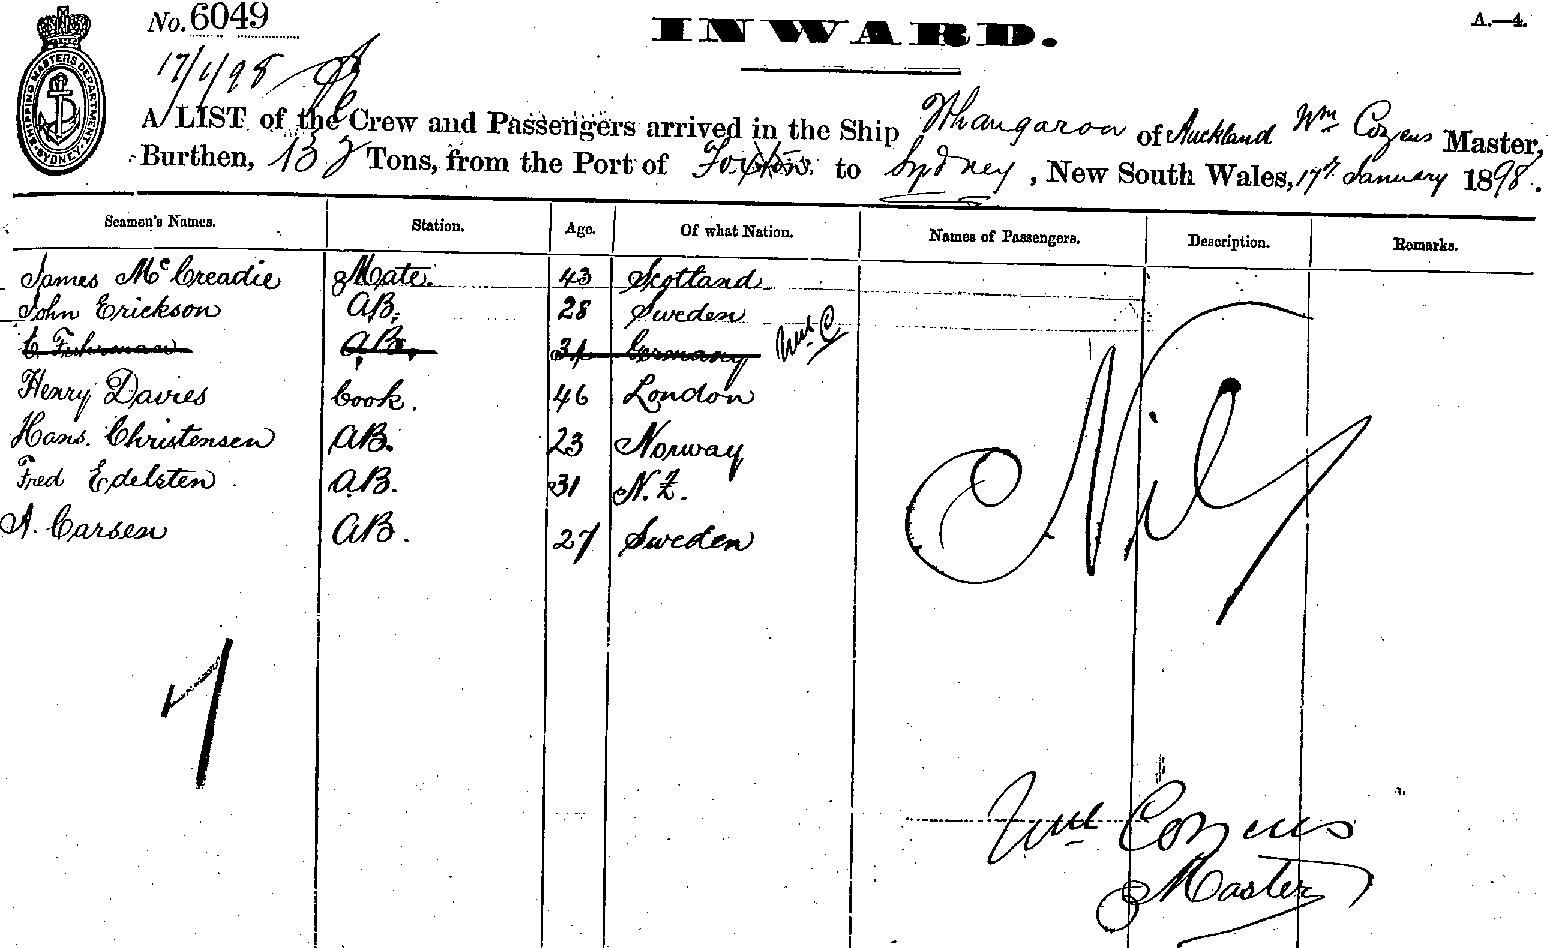 No. 6049
INWARD.
A.—4.
17/1/98
SHIPPING MASTERS DEPARTMENT SYDNEY
A LIST of the Crew and Passengers arrived in the Ship Whangaroa of Auckland Wm Cozens Master,
Burthen, 132 Tons, from the Port of to Sydney, New South Wales, 17th January 1898.
Seamen's Names. Station. Age. Of what Nation. Names of Passengers. Description. Remarks.
James McCreadie Mate. 43 Scotland
John Erickson AB. 28 Sweden
C Fuhrman AB. 31 Germany Wm C
Henry Davies Cook. 46 London
Hans. Christensen AB. 23 Norway
Fred Edelsten AB. 31 N.Z.
A. Carsen AB. 27 Sweden
Nil
7
Wm Cozens
Master